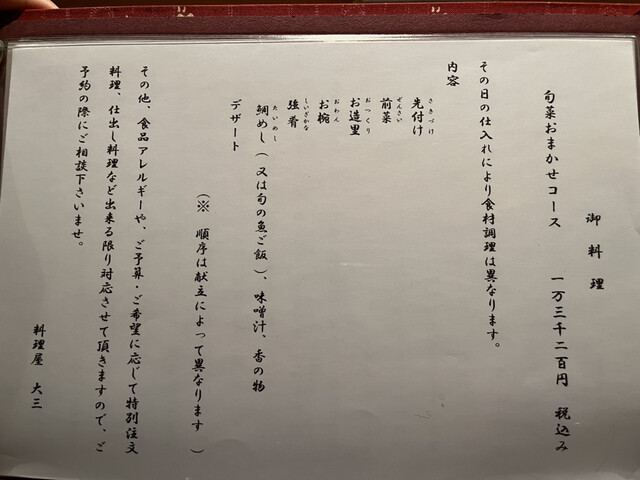 御料理
旬菜おまかせコース 一万三千二百円 税込み
その日の仕入れにより食材調理は異なります。
内容
先付け
さきづけ
前菜
ぜんさい
お造里
おつくり
お椀
おわん
強肴
しいざかな
鯛めし(又は旬の魚ご飯)、味噌汁、香の物
たいめし
デザート
(※ 順序は献立によって異なります)
その他、食品アレルギーや、ご予算・ご希望に応じて特別注文
料理、仕出し料理など出来る限り対応させて頂きますので、ご
予約の際にご相談下さいませ。
料理屋 大三